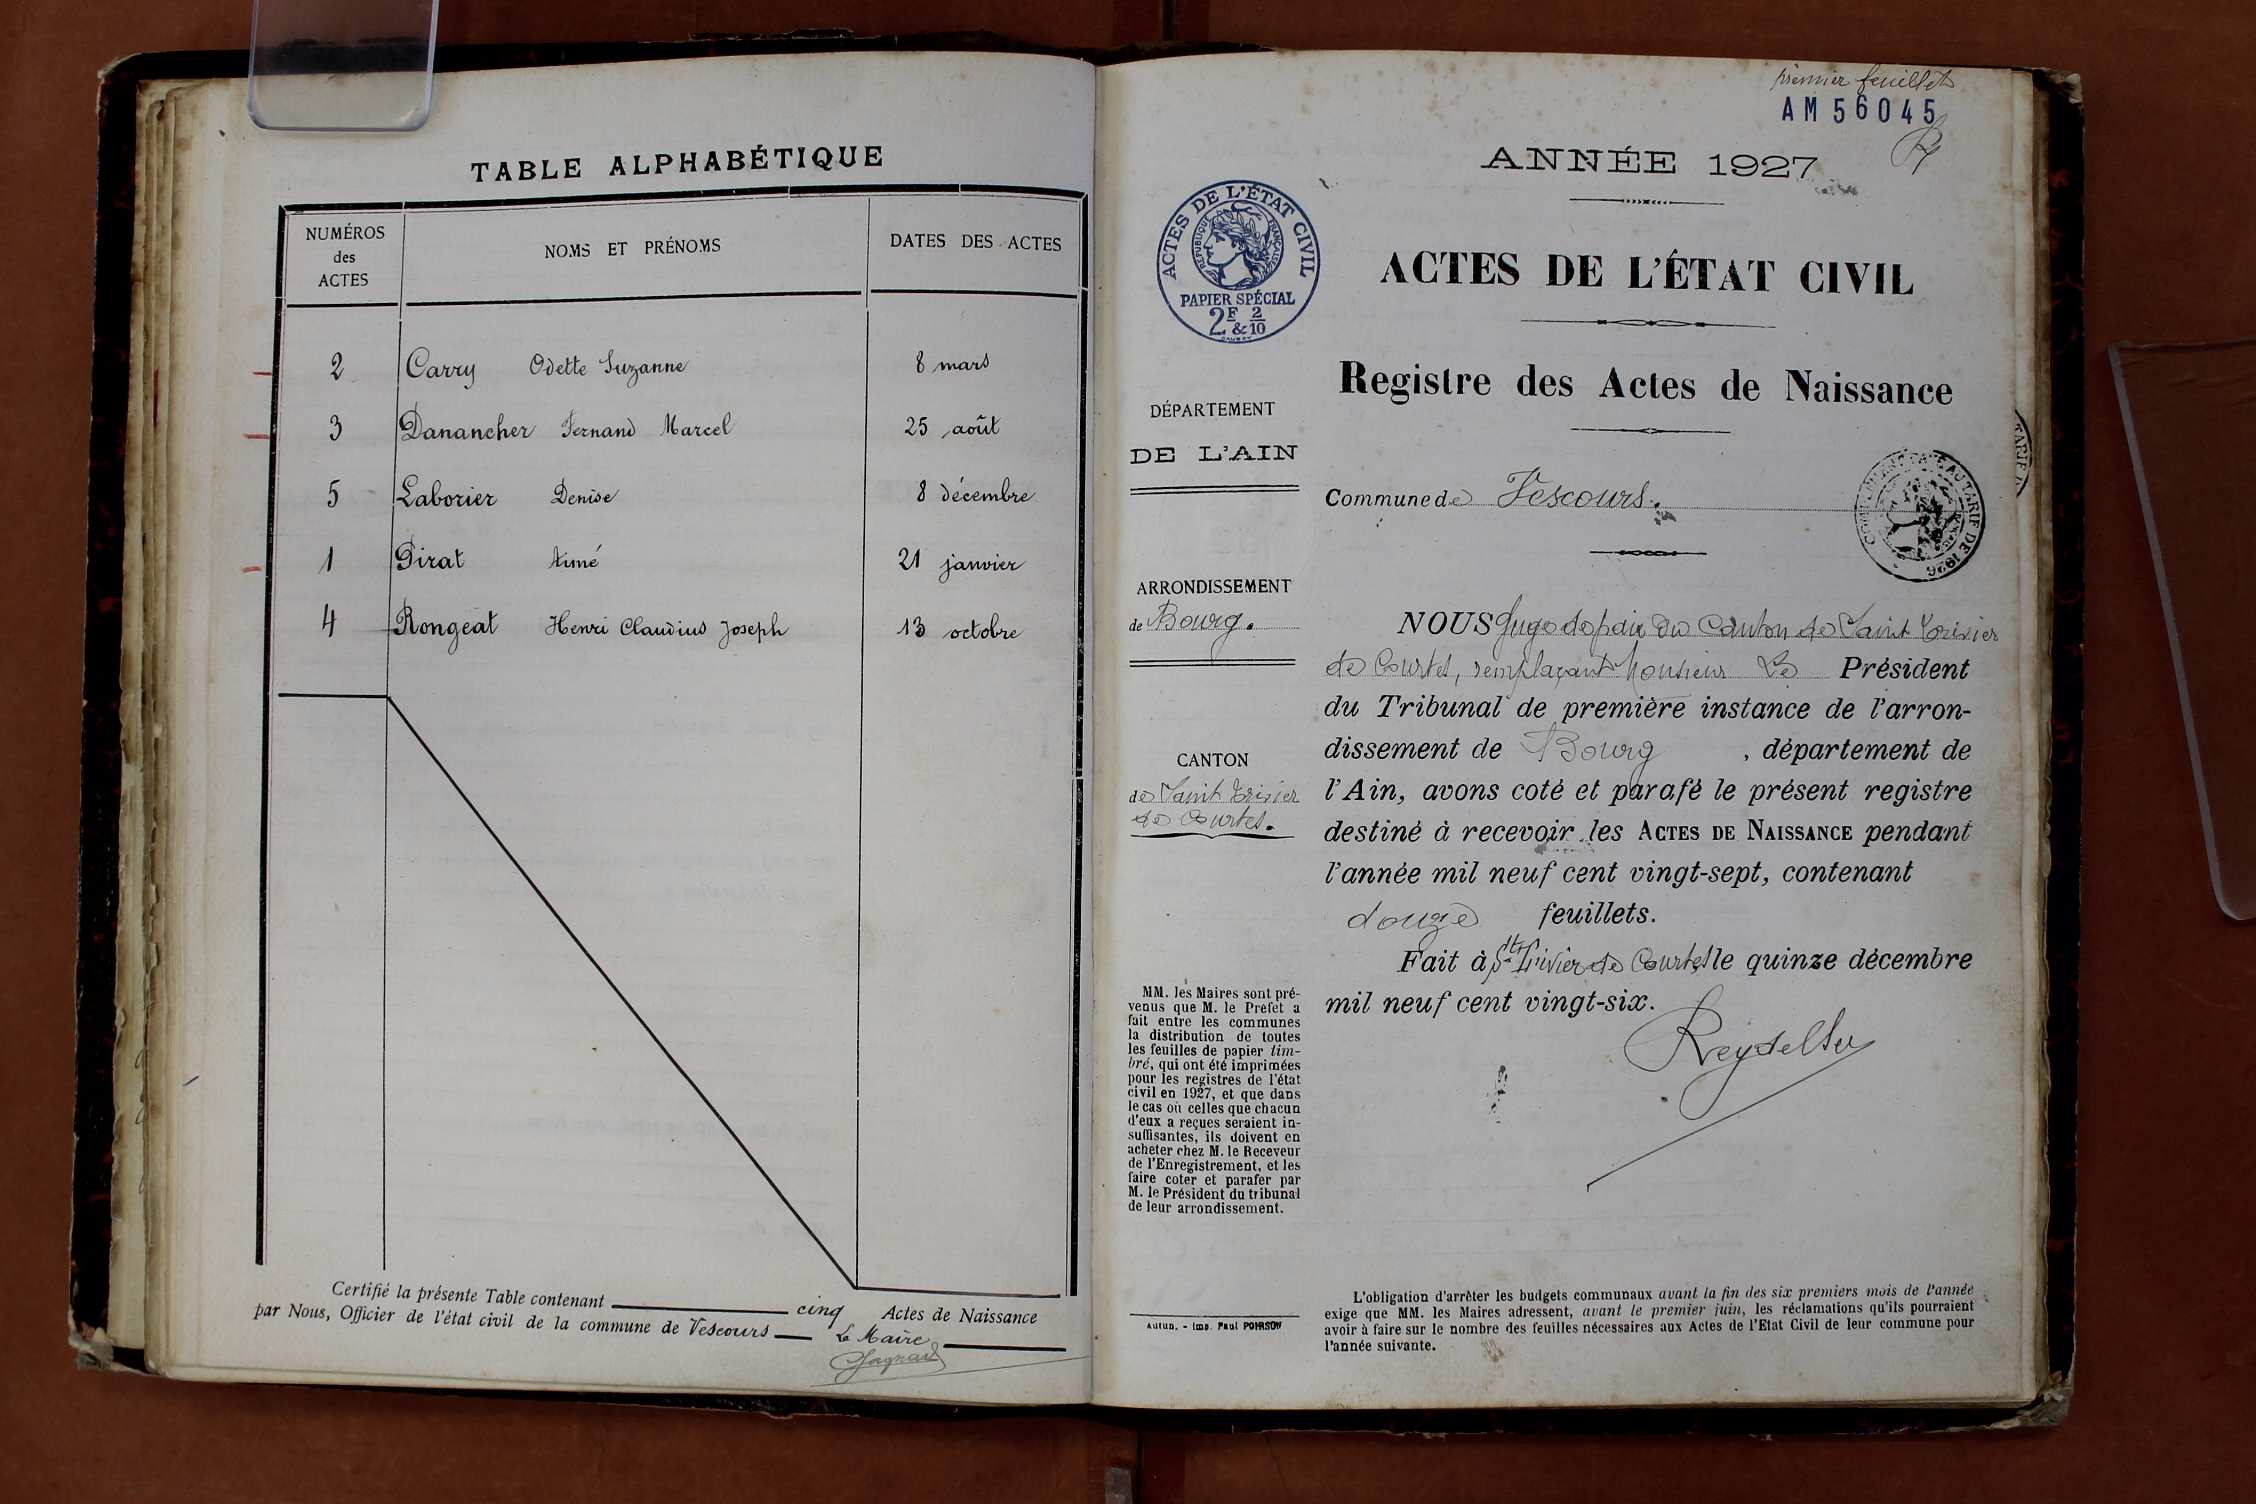 TABLE ALPHABÉTIQUE
NUMÉROS des ACTES NOMS ET PRÉNOMS DATES DES ACTES
2 Carry Odette Suzanne 8 mars
3 Danancher Fernand Marcel 25 août
5 Laborier Denise 8 décembre
1 Pirat Aimé 21 janvier
4 Rongeat Henri Claudius Joseph 13 octobre
Certifié la présente Table contenant cinq Actes de Naissance
par Nous, Officier de l'état civil de la commune de Vescours
Le Maire
premier feuillet
AM 56045
ANNÉE 1927
ACTES DE L'ÉTAT CIVIL
RÉPUBLIQUE FRANÇAISE
PAPIER SPÉCIAL
2F & 2/10
ACTES DE L'ÉTAT CIVIL
Registre des Actes de Naissance
DÉPARTEMENT
DE L'AIN
Commune de Vescours.
TARIF DE 1926
ARRONDISSEMENT
de Bourg.
CANTON
de Saint Trivier
de Courtes.
NOUS Juge de paix du Canton de Saint Trivier
de Courtes, remplaçant Monsieur Le Président
du Tribunal de première instance de l'arron-
dissement de Bourg, département de
l'Ain, avons coté et parafé le présent registre
destiné à recevoir les ACTES DE NAISSANCE pendant
l'année mil neuf cent vingt-sept, contenant
douze feuillets.
Fait à St Trivier de Courtes le quinze décembre
mil neuf cent vingt-six.
MM. les Maires sont pré-
venus que M. le Préfet a
fait entre les communes
la distribution de toutes
les feuilles de papier tim-
bré, qui ont été imprimées
pour les registres de l'état
civil en 1927, et que dans
le cas où celles que chacun
d'eux a reçues seraient in-
suffisantes, ils doivent en
acheter chez M. le Receveur
de l'Enregistrement, et les
faire coter et parafer par
M. le Président du tribunal
de leur arrondissement.
Autun. - Imp. Paul POIRSON
L'obligation d'arrêter les budgets communaux avant la fin des six premiers mois de l'année
exige que MM. les Maires adressent, avant le premier juin, les réclamations qu'ils pourraient
avoir à faire sur le nombre des feuilles nécessaires aux Actes de l'Etat Civil de leur commune pour
l'année suivante.